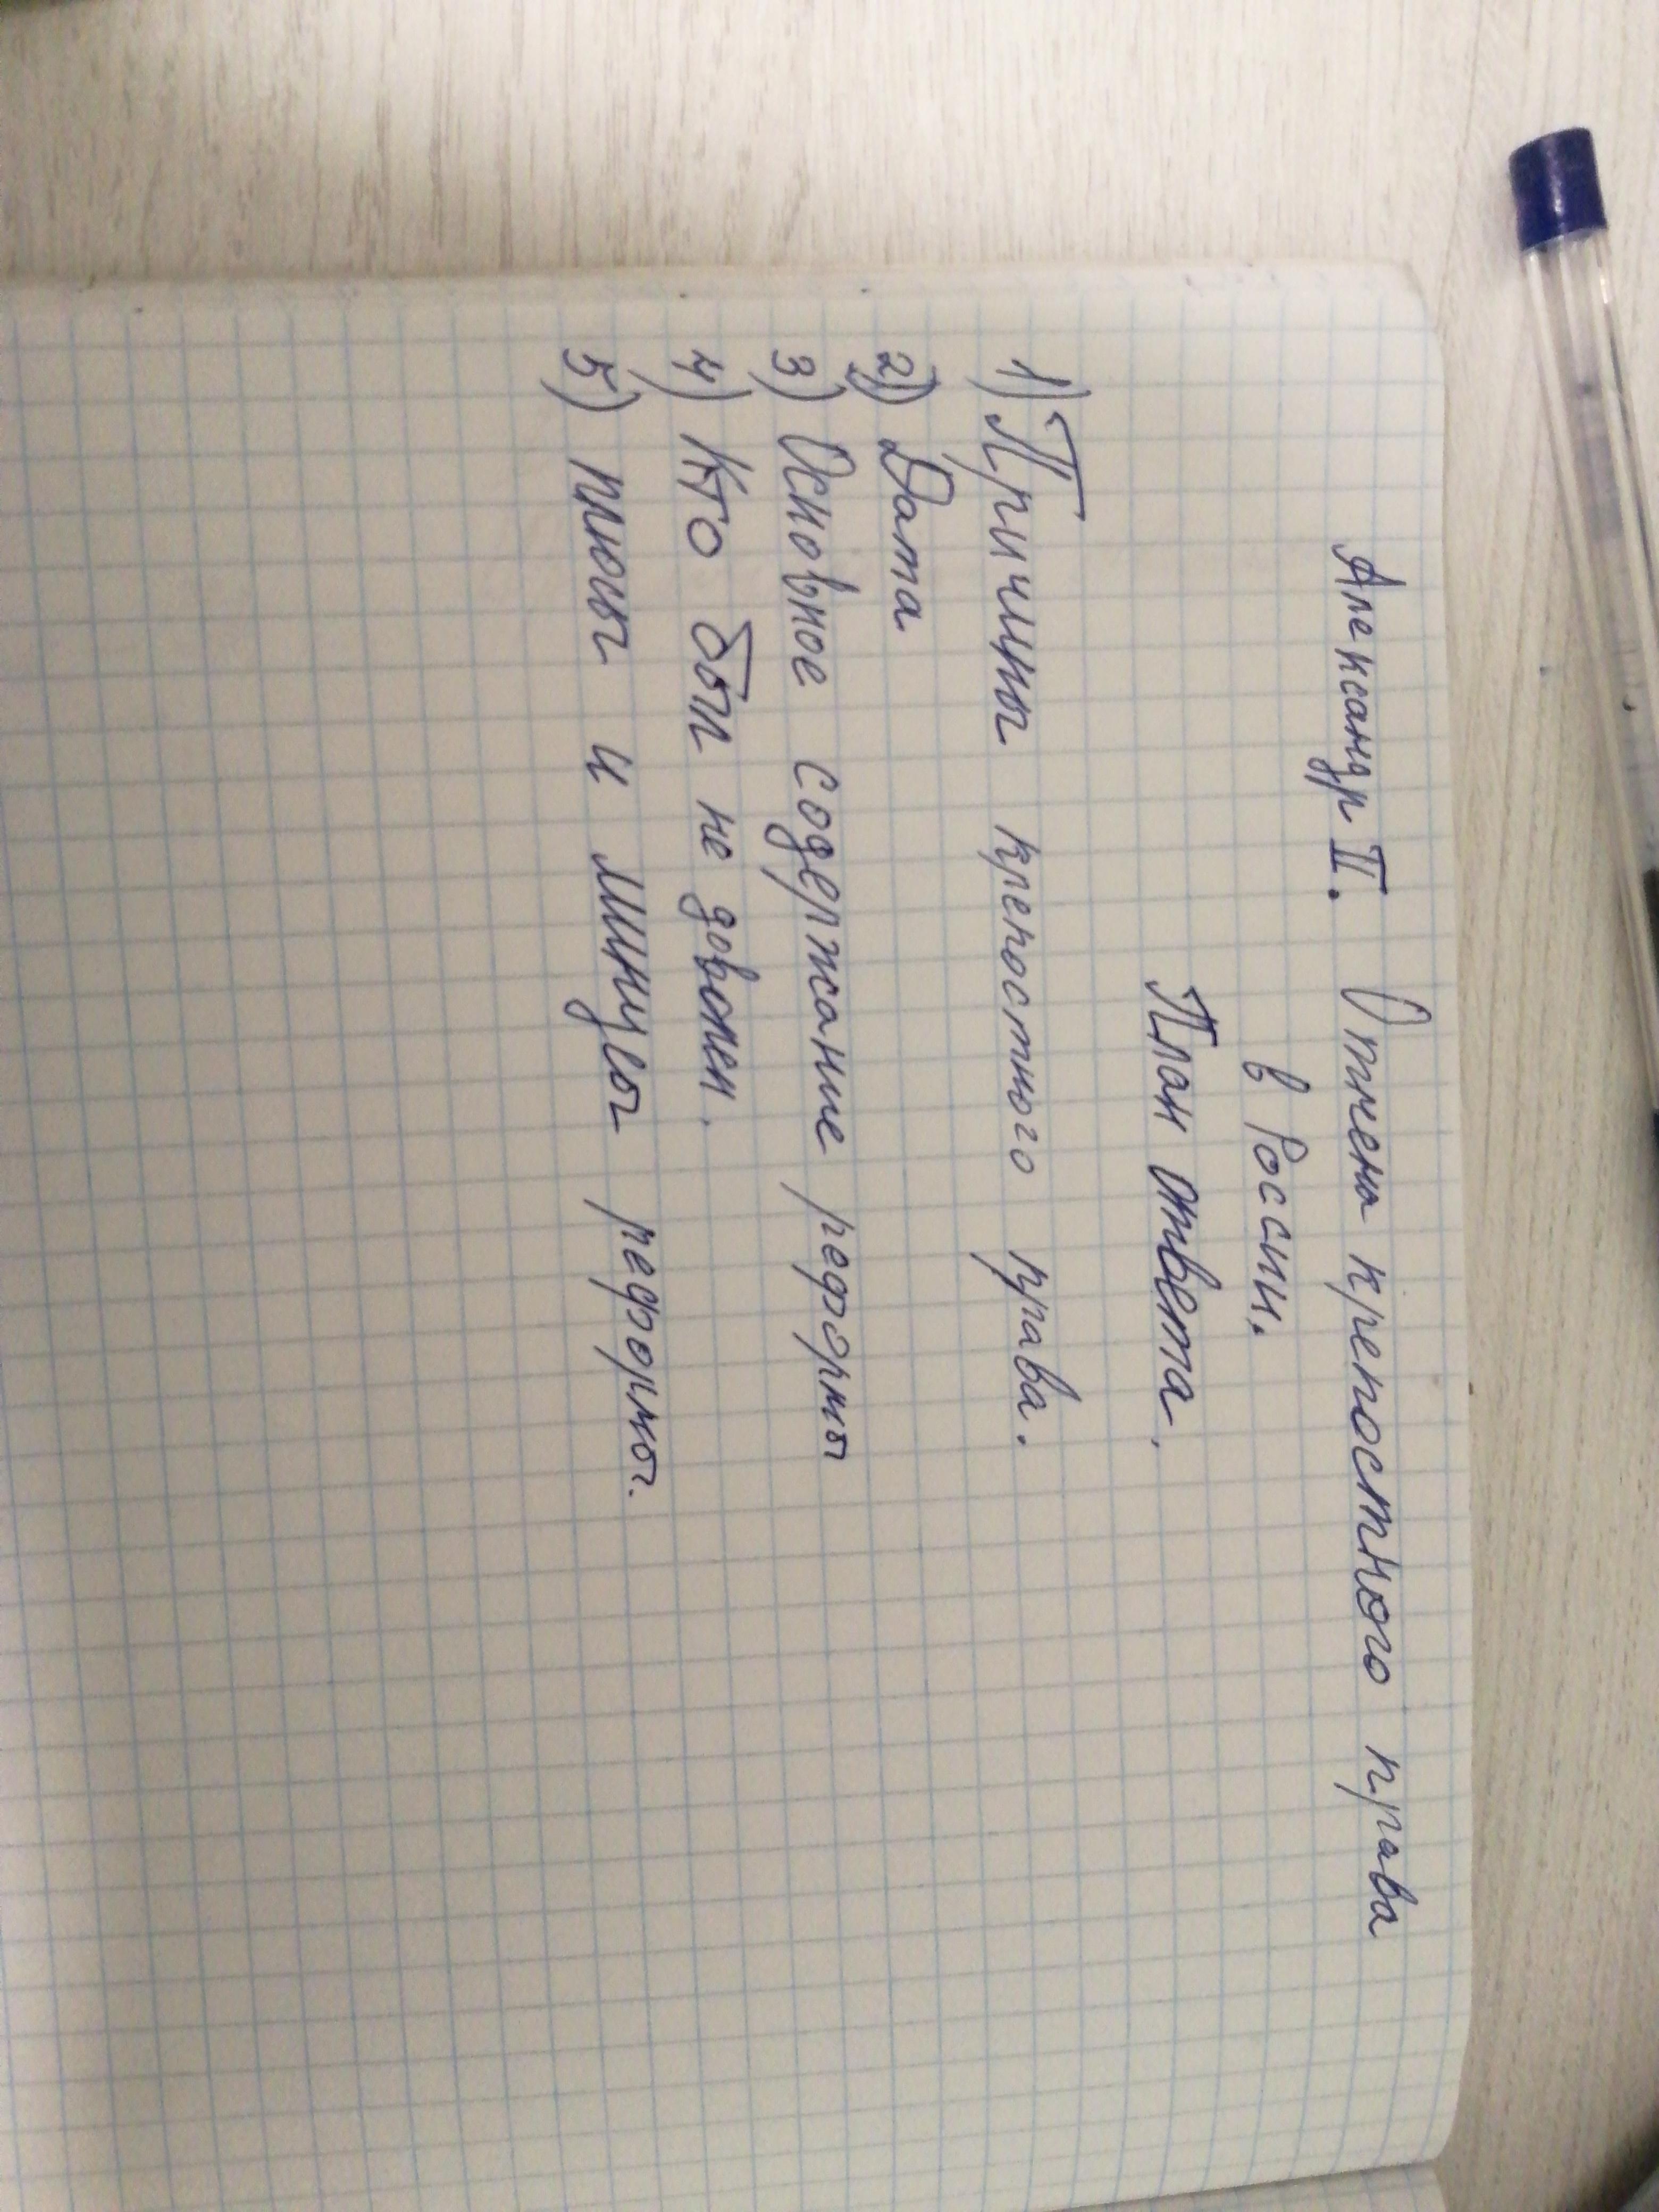 Александр II. Отмена крепостного права
в России.
План ответа.
1) Причины крепостного права.
2) Дата
3) Основное содержание реформы
4) Кто был не доволен.
5) плюсы и минусы реформы.